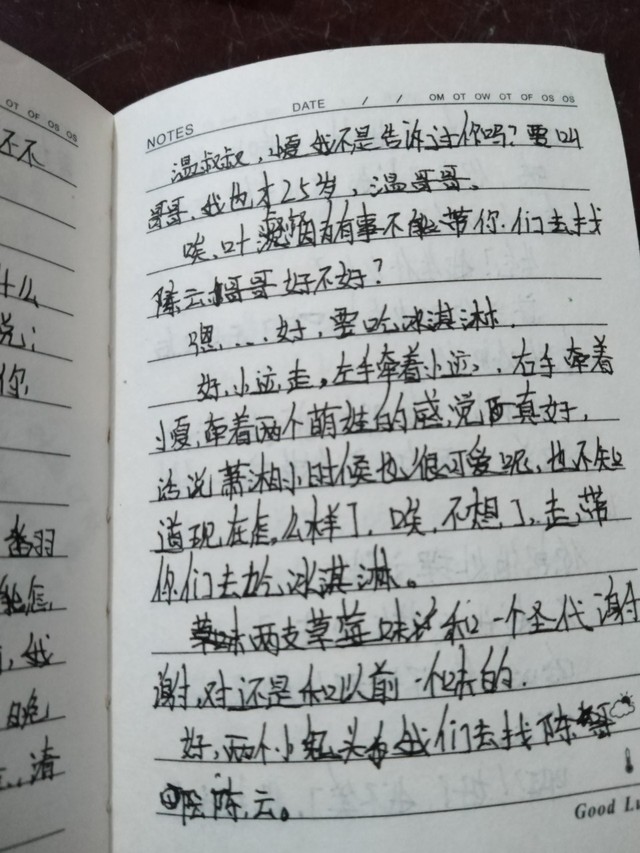 OT OF OS OS
还不
什么
说;
你
番羽
能怎
,我
晚
清
NOTES DATE / / OM OT OW OT OF OS OS
温叔叔,小爱我不是告诉过你吗?要叫
哥哥,我也才25岁,温哥哥。
唉,叶凝因为有事不能带你们去找
陈云哥哥好不好?
嗯....好,要吃冰淇淋.
好,小远走。左手牵着小远,右手牵着
小爱,牵着两个萌娃的感觉真好,
话说萧湘小时候也很可爱呢,也不知
道现在怎么样了,唉,不想了,走,带
你们去吃冰淇淋。
两支草莓味 和一个圣代谢
谢,对还是和以前一个味的.
好,两个小 头 我们去找陈哥
陈云。
Good Lu